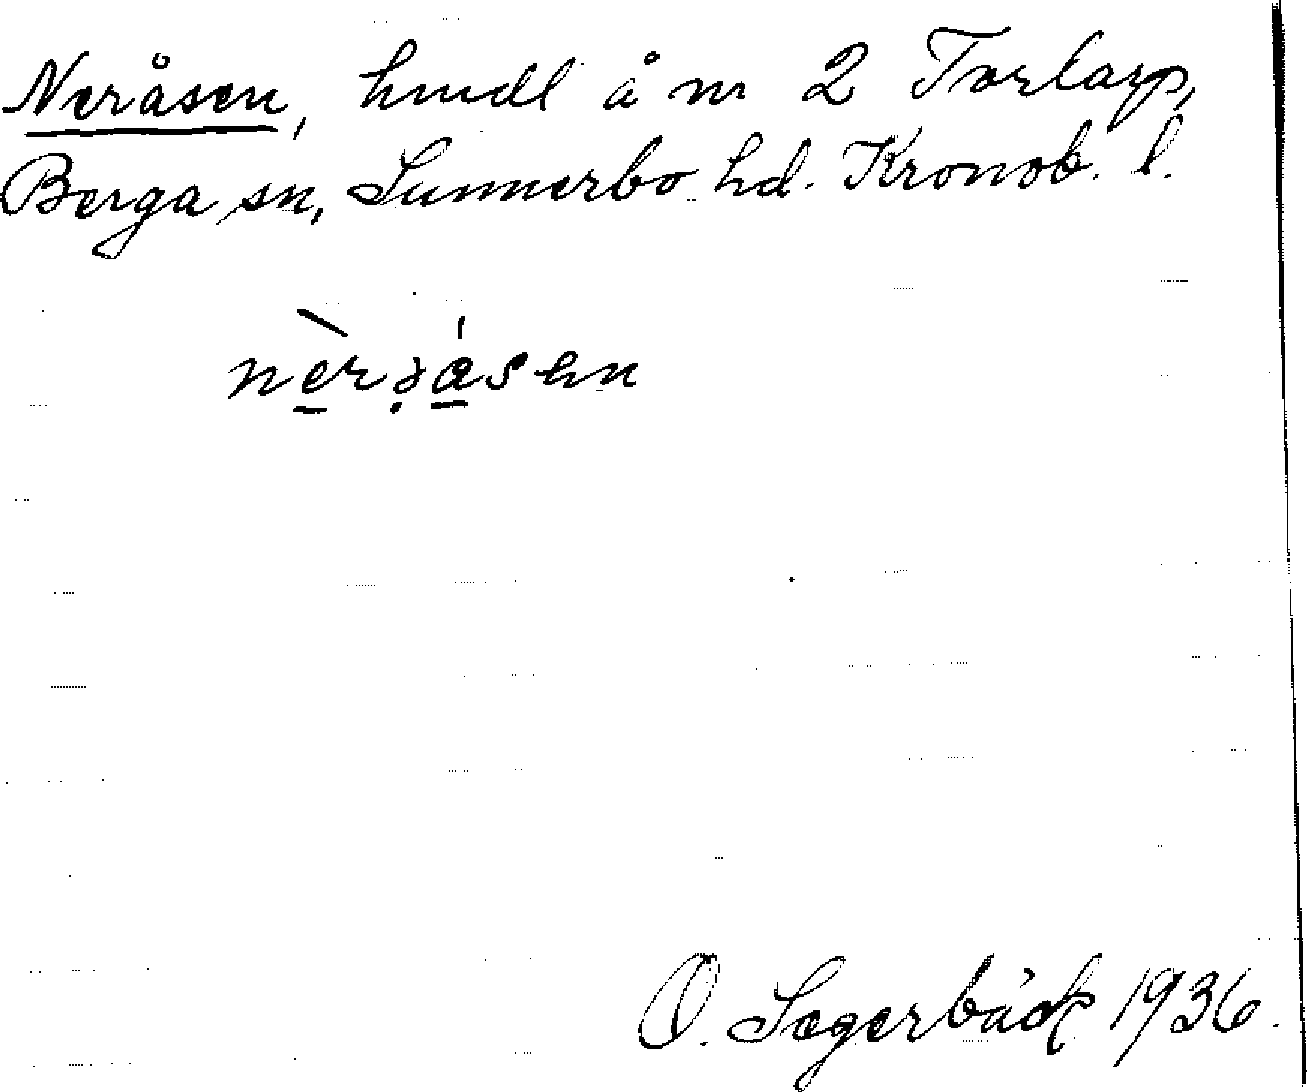 Neråsen, hmdl å nr 2 Torlarp,
Berga sn, Sunnerbo hd. Kronob. l.
O. Segerbäck 1936.